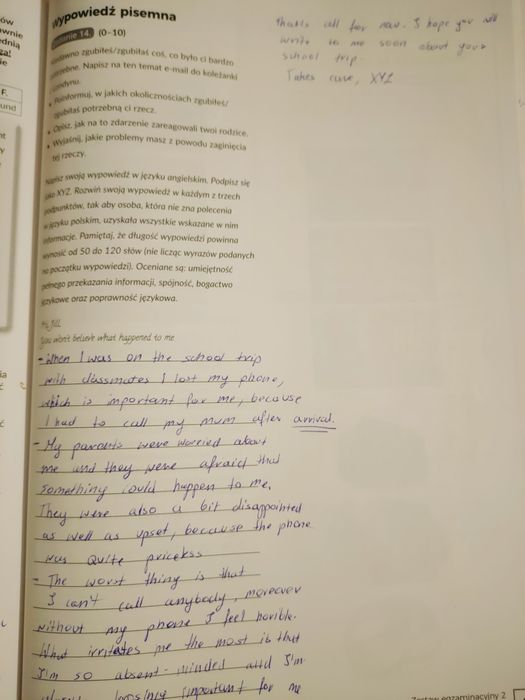 Wypowiedź pisemna
Zadanie 14. (0–10)
zgubiłeś/zgubiłaś coś, co było ci bardzo
Napisz na ten temat e-mail do koleżanki
Londynu.
• Poinformuj, w jakich okolicznościach zgubiłeś/
zgubiłaś potrzebną ci rzecz.
• Opisz, jak na to zdarzenie zareagowali twoi rodzice.
• Wyjaśnij, jakie problemy masz z powodu zaginięcia
tej rzeczy.
Napisz swoją wypowiedź w języku angielskim. Podpisz się
jako XYZ. Rozwiń swoją wypowiedź w każdym z trzech
podpunktów, tak aby osoba, która nie zna polecenia
w języku polskim, uzyskała wszystkie wskazane w nim
informacje. Pamiętaj, że długość wypowiedzi powinna
wynosić od 50 do 120 słów (nie licząc wyrazów podanych
na początku wypowiedzi). Oceniane są: umiejętność
pełnego przekazania informacji, spójność, bogactwo
językowe oraz poprawność językowa.
Hi, Jill,
You won't believe what happened to me
- When I was on the school trip
with classmates I lost my phone,
which is important for me, because
I had to call my mum after arrival.
- My parents were worried about
me and they were afraid that
something could happen to me,
They were also a bit disappointed
as well as upset, because the phone
was quite pricekss
- The worst thing is that
I can't call anybody, moreover
without my phone I feel horible.
What irritates me the most is that
I'm so absent-minded and I'm
important for me
That's all for now. I hope you will
write to me soon about your
school trip.
Takes care, XYZ
Zestaw egzaminacyjny 2